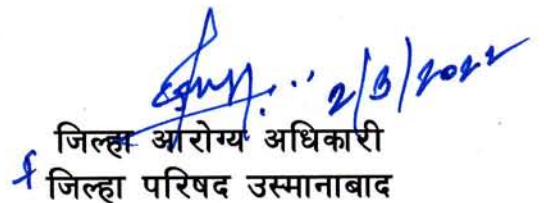 2/3/2022
जिल्हा आरोग्य अधिकारी
जिल्हा परिषद उस्मानाबाद